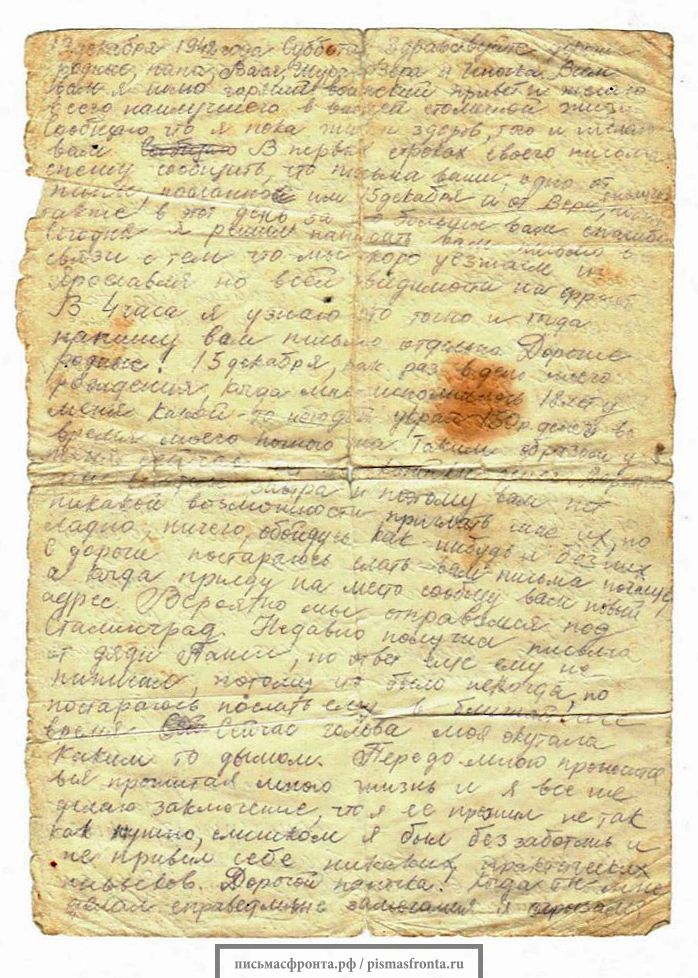 декабря 1942 года Суббота Здравствуйте дорогие
родные, папа, Вася, Шура, Вера и Инночка. Всем
вам я шлю горячий воинский привет и желаю
всего наилучшего в вашей столичной жизни.
Сообщаю, что я пока жив и здоров, того и желаю
вам В первых строках своего письма
спешу сообщить, что письма ваши, одно от
посланное им 5 декабря и от Веры,
также в этот день большое вам спасибо
Сегодня я решил написать вам письмо в
связи с тем что мы скоро уезжаем из
Ярославля по всей видимости на фронт
В 4 часа я узнаю это точно и тогда
напишу вам письмо отдельно Дорогие
родные! 15 декабря, как раз в день моего
рождения, когда мне исполнилось 18 лет у
меня какой-то негодяй украл 150 р денег во
время моего Таким образом у
меня сейчас нет
и потому вам нет
никакой возможности прислать мне их, но
ладно, ничего, обойдусь как-нибудь и без них
С дороги постараюсь слать вам письма почаще,
а когда приеду на место сообщу вам новый
адрес. Вероятно мы отправимся под
Сталинград. Недавно получил письма
от дяди Паши, но ответ еще ему не
написал, потому что было некогда, но
постараюсь послать ему в ближайшее
время. Сейчас голова моя окутана
каким то дымом. Передо мною проносится
вся прожитая мною жизнь и я все же
делаю заключение, что я ее прожил не так
как нужно, слишком я был беззаботным и
не привил себе никаких практических
навыков. Дорогой папочка! Когда ты мне
делал справедливые замечания я огрызался
письмасфронта.рф / pismasfronta.ru